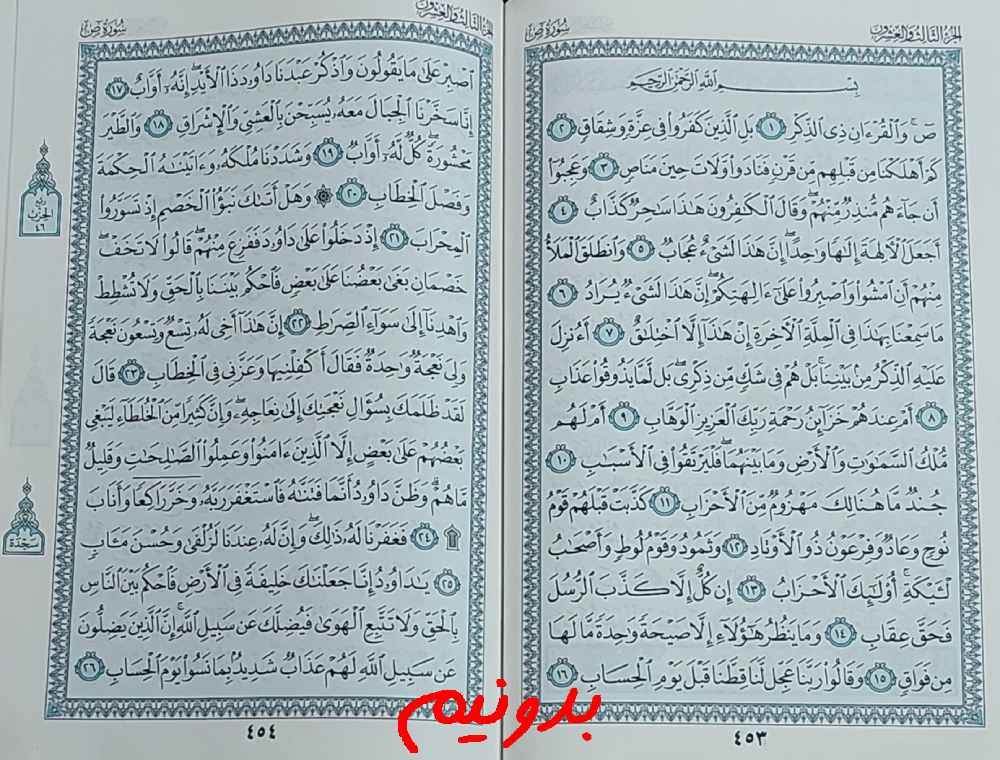 الجزء الثالث والعشرون
سورة ص
بسم الله الرحمن الرحيم
صٓۚ وَٱلۡقُرۡءَانِ ذِي ٱلذِّكۡرِ ١ بَلِ ٱلَّذِينَ كَفَرُواْ فِي عِزَّةٖ وَشِقَاقٖ ٢
كَمۡ أَهۡلَكۡنَا مِن قَبۡلِهِم مِّن قَرۡنٖ فَنَادَواْ وَّلَاتَ حِينَ مَنَاصٖ ٣ وَعَجِبُوٓاْ
أَن جَآءَهُم مُّنذِرٞ مِّنۡهُمۡۖ وَقَالَ ٱلۡكَٰفِرُونَ هَٰذَا سَٰحِرٞ كَذَّابٌ ٤
أَجَعَلَ ٱلۡأٓلِهَةَ إِلَٰهٗا وَٰحِدًاۖ إِنَّ هَٰذَا لَشَيۡءٌ عُجَابٞ ٥ وَٱنطَلَقَ ٱلۡمَلَأُ
مِنۡهُمۡ أَنِ ٱمۡشُواْ وَٱصۡبِرُواْ عَلَىٰٓ ءَالِهَتِكُمۡۖ إِنَّ هَٰذَا لَشَيۡءٞ يُرَادُ ٦
مَا سَمِعۡنَا بِهَٰذَا فِي ٱلۡمِلَّةِ ٱلۡأٓخِرَةِ إِنۡ هَٰذَآ إِلَّا ٱخۡتِلَٰقٌ ٧ أَءُنزِلَ
عَلَيۡهِ ٱلذِّكۡرُ مِنۢ بَيۡنِنَاۚ بَلۡ هُمۡ فِي شَكّٖ مِّن ذِكۡرِيۚ بَل لَّمَّا يَذُوقُواْ عَذَابِ
٨ أَمۡ عِندَهُمۡ خَزَآئِنُ رَحۡمَةِ رَبِّكَ ٱلۡعَزِيزِ ٱلۡوَهَّابِ ٩ أَمۡ لَهُم
مُّلۡكُ ٱلسَّمَٰوَٰتِ وَٱلۡأَرۡضِ وَمَا بَيۡنَهُمَاۖ فَلۡيَرۡتَقُواْ فِي ٱلۡأَسۡبَٰبِ ١٠
جُندٞ مَّا هُنَالِكَ مَهۡزُومٞ مِّنَ ٱلۡأَحۡزَابِ ١١ كَذَّبَتۡ قَبۡلَهُمۡ قَوۡمُ
نُوحٖ وَعَادٞ وَفِرۡعَوۡنُ ذُو ٱلۡأَوۡتَادِ ١٢ وَثَمُودُ وَقَوۡمُ لُوطٖ وَأَصۡحَٰبُ
لۡـَٔيۡكَةِۚ أُوْلَٰٓئِكَ ٱلۡأَحۡزَابُ ١٣ إِن كُلٌّ إِلَّا كَذَّبَ ٱلرُّسُلَ
فَحَقَّ عِقَابِ ١٤ وَمَا يَنظُرُ هَٰٓؤُلَآءِ إِلَّا صَيۡحَةٗ وَٰحِدَةٗ مَّا لَهَا
مِن فَوَاقٖ ١٥ وَقَالُواْ رَبَّنَا عَجِّل لَّنَا قِطَّنَا قَبۡلَ يَوۡمِ ٱلۡحِسَابِ ١٦
٤٥٣
الجزء الثالث والعشرون
سورة ص
ٱصۡبِرۡ عَلَىٰ مَا يَقُولُونَ وَٱذۡكُرۡ عَبۡدَنَا دَاوُۥدَ ذَا ٱلۡأَيۡدِۖ إِنَّهُۥٓ أَوَّابٌ ١٧
إِنَّا سَخَّرۡنَا ٱلۡجِبَالَ مَعَهُۥ يُسَبِّحۡنَ بِٱلۡعَشِيِّ وَٱلۡإِشۡرَاقِ ١٨ وَٱلطَّيۡرَ
مَحۡشُورَةٗۖ كُلّٞ لَّهُۥٓ أَوَّابٞ ١٩ وَشَدَدۡنَا مُلۡكَهُۥ وَءَاتَيۡنَٰهُ ٱلۡحِكۡمَةَ
وَفَصۡلَ ٱلۡخِطَابِ ٢٠ ۞ وَهَلۡ أَتَىٰكَ نَبَؤُاْ ٱلۡخَصۡمِ إِذۡ تَسَوَّرُواْ
ٱلۡمِحۡرَابَ ٢١ إِذۡ دَخَلُواْ عَلَىٰ دَاوُۥدَ فَفَزِعَ مِنۡهُمۡۖ قَالُواْ لَا تَخَفۡۖ
خَصۡمَانِ بَغَىٰ بَعۡضُنَا عَلَىٰ بَعۡضٖ فَٱحۡكُم بَيۡنَنَا بِٱلۡحَقِّ وَلَا تُشۡطِطۡ
وَٱهۡدِنَآ إِلَىٰ سَوَآءِ ٱلصِّرَٰطِ ٢٢ إِنَّ هَٰذَآ أَخِي لَهُۥ تِسۡعٞ وَتِسۡعُونَ نَعۡجَةٗ
وَلِيَ نَعۡجَةٞ وَٰحِدَةٞ فَقَالَ أَكۡفِلۡنِيهَا وَعَزَّنِي فِي ٱلۡخِطَابِ ٢٣ قَالَ
لَقَدۡ ظَلَمَكَ بِسُؤَالِ نَعۡجَتِكَ إِلَىٰ نِعَاجِهِۦۖ وَإِنَّ كَثِيرٗا مِّنَ ٱلۡخُلَطَآءِ لَيَبۡغِي
بَعۡضُهُمۡ عَلَىٰ بَعۡضٍ إِلَّا ٱلَّذِينَ ءَامَنُواْ وَعَمِلُواْ ٱلصَّٰلِحَٰتِ وَقَلِيلٞ
مَّا هُمۡۗ وَظَنَّ دَاوُۥدُ أَنَّمَا فَتَنَّٰهُ فَٱسۡتَغۡفَرَ رَبَّهُۥ وَخَرَّۤ رَاكِعٗاۤ وَأَنَابَ
۩ ٢٤ فَغَفَرۡنَا لَهُۥ ذَٰلِكَۖ وَإِنَّ لَهُۥ عِندَنَا لَزُلۡفَىٰ وَحُسۡنَ مَـَٔابٖ
٢٥ يَٰدَاوُۥدُ إِنَّا جَعَلۡنَٰكَ خَلِيفَةٗ فِي ٱلۡأَرۡضِ فَٱحۡكُم بَيۡنَ ٱلنَّاسِ
بِٱلۡحَقِّ وَلَا تَتَّبِعِ ٱلۡهَوَىٰ فَيُضِلَّكَ عَن سَبِيلِ ٱللَّهِۚ إِنَّ ٱلَّذِينَ يَضِلُّونَ
عَن سَبِيلِ ٱللَّهِ لَهُمۡ عَذَابٞ شَدِيدُۢ بِمَا نَسُواْ يَوۡمَ ٱلۡحِسَابِ ٢٦
ربع
الحزب
٤٦
سجدة
٤٥٤
بدونیم